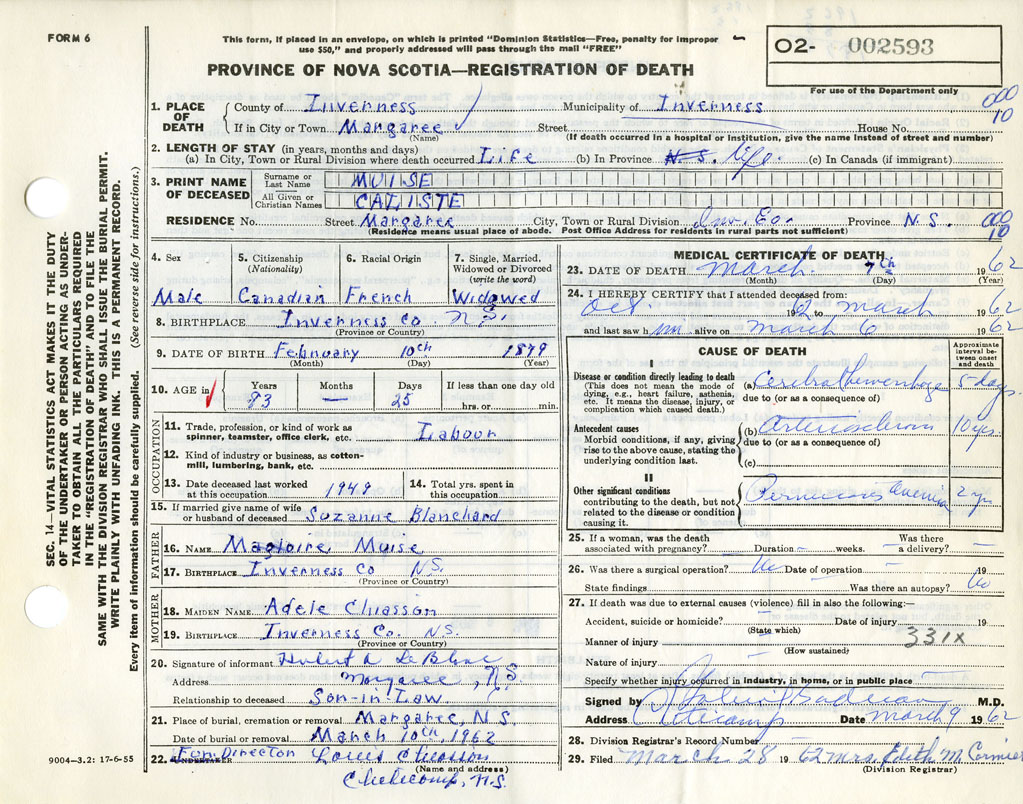 FORM 6
This form, if placed in an envelope, on which is printed "Dominion Statistics—Free, penalty for improper
use $50," and properly addressed will pass through the mail "FREE"
O2- 002593
For use of the Department only
PROVINCE OF NOVA SCOTIA—REGISTRATION OF DEATH
SEC. 14—VITAL STATISTICS ACT MAKES IT THE DUTY
OF THE UNDERTAKER OR PERSON ACTING AS UNDER-
TAKER TO OBTAIN ALL THE PARTICULARS REQUIRED
IN THE "REGISTRATION OF DEATH" AND TO FILE THE
SAME WITH THE DIVISION REGISTRAR WHO SHALL ISSUE THE BURIAL PERMIT.
WRITE PLAINLY WITH UNFADING INK. THIS IS A PERMANENT RECORD.
Every item of information should be carefully supplied. (See reverse side for instructions.)
1. PLACE OF DEATH
County of Inverness Municipality of Inverness 000 10
If in City or Town Margaree Street House No.
(Name) (If death occurred in a hospital or institution, give the name instead of street and number)
2. LENGTH OF STAY (in years, months and days)
(a) In City, Town or Rural Division where death occurred Life (b) In Province N.S. life (c) In Canada (if immigrant)
3. PRINT NAME OF DECEASED
Surname or Last Name MUISE
All Given or Christian Names CALISTE
RESIDENCE No. Street Margaree City, Town or Rural Division Inv. Co. Province N.S. 000 10
(Residence means usual place of abode. Post Office Address for residents in rural parts not sufficient)
4. Sex 5. Citizenship (Nationality) 6. Racial Origin 7. Single, Married, Widowed or Divorced (write the word)
Male Canadian French Widowed
8. BIRTHPLACE Inverness Co. N.S.
(Province or Country)
9. DATE OF BIRTH February 10th 1879
(Month) (Day) (Year)
10. AGE in Years Months Days If less than one day old
83 — 25 hrs. or min.
OCCUPATION
11. Trade, profession, or kind of work as
spinner, teamster, office clerk, etc. Labour
12. Kind of industry or business, as cotton-
mill, lumbering, bank, etc.
13. Date deceased last worked at this occupation 1949 14. Total yrs. spent in this occupation
15. If married give name of wife
or husband of deceased Suzanne Blanchard
FATHER
16. NAME Magloire Muise
17. BIRTHPLACE Inverness Co N.S.
(Province or Country)
MOTHER
18. MAIDEN NAME Adele Chiasson
19. BIRTHPLACE Inverness Co. N.S.
(Province or Country)
20. Signature of informant Hubert A LeBlanc
Address Margaree, N.S.
Relationship to deceased Son-in-Law
21. Place of burial, cremation or removal Margaree, N.S.
Date of burial or removal March 10th, 1962
22. UNDERTAKER Fun. Director Louis Chiasson
(Name and address)
Cheticamp, N.S.
9004—3.2: 17-6-55
MEDICAL CERTIFICATE OF DEATH
23. DATE OF DEATH March 7th 1962
(Month) (Day) (Year)
24. I HEREBY CERTIFY that I attended deceased from:
Oct. 1962 to march 1962
and last saw him alive on march 6 1962
CAUSE OF DEATH
Approximate interval between onset and death
I
Disease or condition directly leading to death
(This does not mean the mode of
dying, e.g., heart failure, asthenia,
etc. It means the disease, injury, or
complication which caused death.)
(a) Cerebral hemorrhage 5 days
due to (or as a consequence of)
Antecedent causes
Morbid conditions, if any, giving
rise to the above cause, stating the
underlying condition last.
(b) Arteriosclerosis 10 yrs.
due to (or as a consequence of)
(c)
II
Other significant conditions
contributing to the death, but not
related to the disease or condition
causing it.
Pernicious anemia 2 yrs
25. If a woman, was the death
associated with pregnancy? — Duration — weeks. Was there a delivery? —
26. Was there a surgical operation? No Date of operation — 19
State findings Was there an autopsy? No
27. If death was due to external causes (violence) fill in also the following:—
Accident, suicide or homicide? — Date of injury — 19
(State which)
Manner of injury — 331X
(How sustained)
Nature of injury —
Specify whether injury occurred in industry, in home, or in public place —
Signed by M.D.
Address Cheticamp Date march 9 1962
28. Division Registrar's Record Number
29. Filed March 28 1962 Mrs. Edith M Cormier
(Division Registrar)